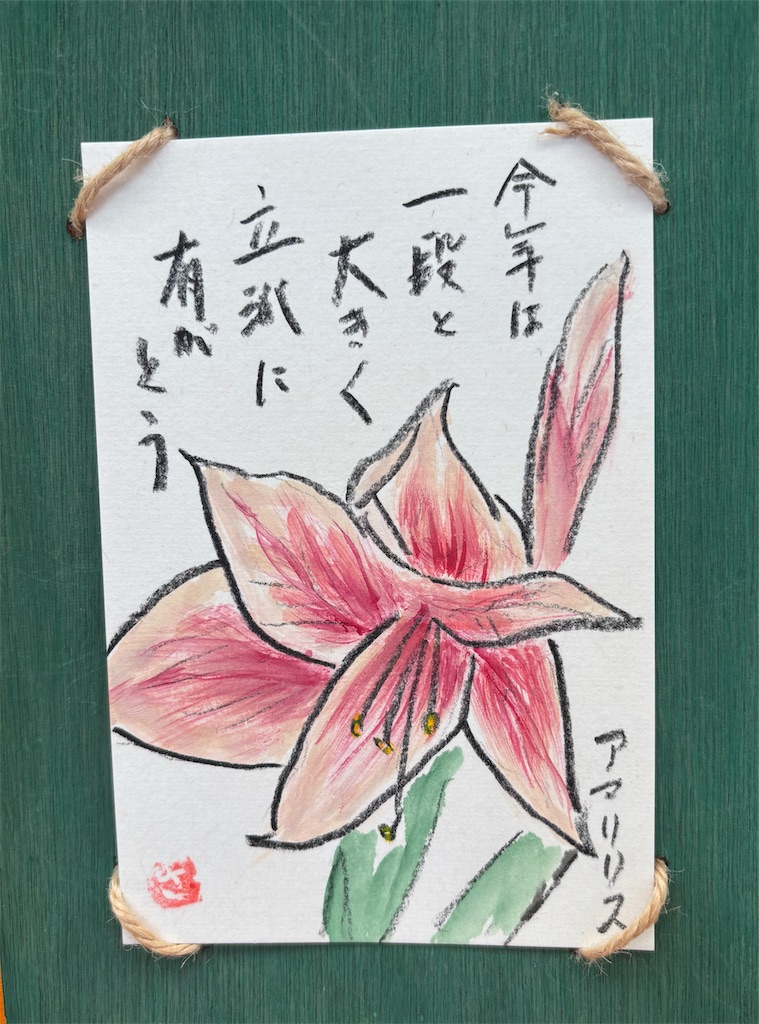 今年は
一段と
大きく
立派に
有がとう
アマリリス